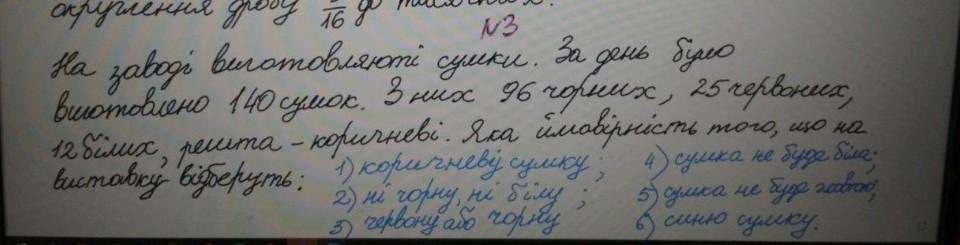 округлення дробу /16 до тисячних.
№3
На заводі виготовляють сумки. За день було
виготовлено 140 сумок. З них 96 чорних, 25 червоних,
12 білих, решта – коричневі. Яка ймовірність того, що на
виставку відберуть: 1) коричневу сумку; 4) сумка не буде біла;
2) ні чорну, ні білу; 5) сумка не буде жовтою;
3) червону або чорну 6) синю сумку.